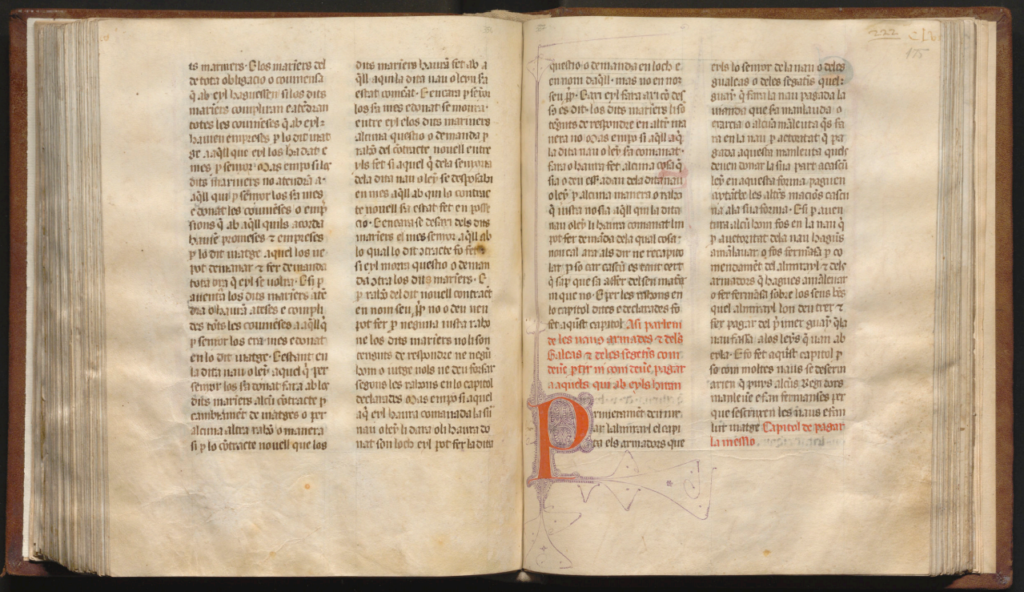 ts mariners. E los mariners del
de tota obligacio o couinensa
q̃ ab eyl haguessen si los dits
mariners compliran e atẽdran
totes les couinẽses q̃ ab eyl
hauien empreses p lo dit viat
ge a aq̃ll que eyl los ha dat e
mes p senyor. Mas empo si los
dits mariners no atendrã a
aq̃ll qui p senyor los sa mes
e donat les couinẽses o emp̃
sions q̃ ab aq̃ll quils acorda
hauiẽ promeses & empreses
p lo dit viatge aquel los ne
pot demanar & fer demanda
tota ora q̃ eyl se uolra. E si p
auentura los dits mariners atẽ
dra o haurã ateses e compli
des totes les couinẽses a aq̃ll q̃
p senyor los era mes e donat
en lo dit viatge. Estant en
la dita nau o leyn aquel q̃ per
senyor los sa donat fara ab los
dits mariners alcũ cõtracte p
cambiamẽt de viatges o per
alcuna altra raho o manera
si p lo cõtracte nouell que los
dits mariners haurã fet ab a
q̃ll aqui la dita nau o leyn sa
estat comãat. E encara p senyor
los sa mes e donat se moura
entre eyl e los dits mariners
alcuna questio o demanda p
raho del cõtracte nouell entre
yls fet si aquel q̃ dela senyoria
dela dita nau o leyn se desposahi
en mes aq̃ll ab qui la contrac
te nouell sa estat fet en posse
cio. E encara se desisi dels dits
mariners e mes senyor aq̃ll ab
lo qual lo dit cõtracte fo fet
si eyl moura questio o deman
da cõtra los dits mariners. E
p raho del dit nouell contract
en nom seu, p no o deu neu
pot fer p neguna iusta raho
ne los dits mariners no li son
tenguts de respondre ne negũ
hom o iutge nols ne deu forsar
segons les rahons en lo capitol
declarades. Mas empo si aquel
aq̃ eyl haura comanada la sua
nau o leyn li dara o li haura do
nat son loch eyl pot fer la dita
questio o demanda en loch e
en nom daq̃ll. mas no en nom
seu pp. E axi eyl fara axi cõ des
so es dit. los dits mariners li so
tẽguts de respondre en altre ma
nera no. Mas empo si aq̃ll aq̃
la dita nau o leyn sa comanat.
fara o haura fet alcuna cosa q̃
sia o deu esser adan dela dita nau
o leyn p alcuna manera o raho
q̃ iusta no sia aq̃ll qui la dita
nau o leyn li haura comanat lin
pot fer demãda dela qual cosa
nou cal ara als dir ne recapito
lar. p so car cascũ es tant cert
q̃ sap que sa a fer del seu mati
in que no. E per les rahons en
lo capitol dites e declarades fo
fet aq̃st capitol. Assi parlem
de les naus armades & dels
Galeas & deles segeties com
deuẽ pstar ni com deuẽ pagar
a aquels qui ab eyls hiran
Primerament deu iur
ar lalmirayl el capi
ta els armadors que
eyls lo senyor dela nau o deles
gualeas o deles segeties quel
guayn q̃ fara la nau pagada la
vianda que sa manleuda. o
exarcia o alcũa mãleuta q̃s fa
ra en la nau p actoritat q̃ pa
gada aquesta manleuta quels
deuen donar la sua part a cascũ
leyn en aquesta forma. paguen
aytãbe les altres macios cascu
na a la sua forma. E si p auen
tura alcũ hom fos en la nau q̃
p auctoritat dela nau hagues
amãlauat o fos fermãsa p co
mendament del almirayl & dels
armadors q̃ hagues amãleuar
o fer fermãsa sobre los seus bẽs
quel almirayl lon deu trer &
fer pagar del primer guayn q̃ la
nau fassa a los leyns q̃ van ab
eyla. E so fet aq̃st capitol p
so com moltes naus se deserin
arien q̃ puys alcus Veyedors
manleue e fan fermanses per
que se seruexen les naus e fan
lur viatge Capitol de pagar
la messio.
222
175